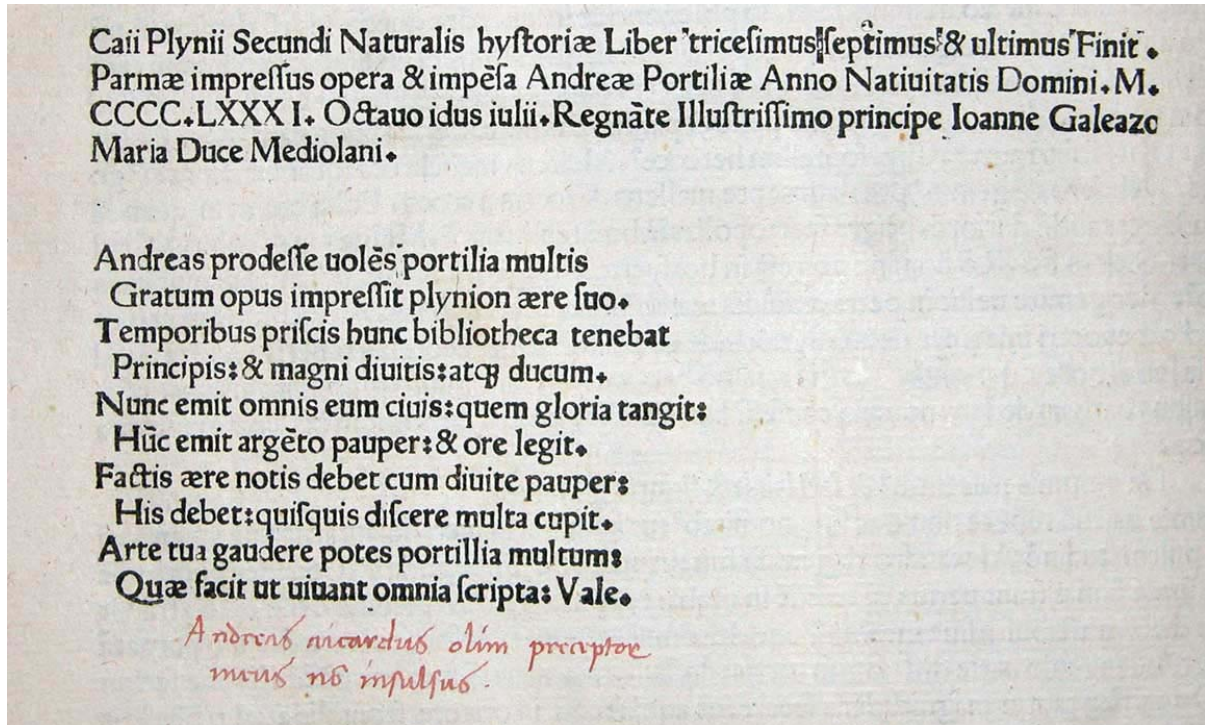 Caii Plynii Secundi Naturalis hyſtoriæ Liber triceſimus ſeptimus & ultimus Finit.
Parmæ impreſſus opera & impēſa Andreæ Portiliæ Anno Natiuitatis Domini. M.
CCCC.LXXX I. Octauo idus iulii. Regnāte Illuſtriſſimo principe Ioanne Galeazo
Maria Duce Mediolani.
Andreas prodeſſe uolēs portilia multis
Gratum opus impreſſit plynion ære ſuo.
Temporibus priſcis hunc bibliotheca tenebat
Principis: & magni diuitis: atqꝫ ducum.
Nunc emit omnis eum ciuis: quem gloria tangit:
Hūc emit argēto pauper: & ore legit.
Factis ære notis debet cum diuite pauper:
His debet: quiſquis diſcere multa cupit.
Arte tua gaudere potes portillia multum:
Quæ facit ut uiuant omnia ſcripta: Vale.
Andreas olim preceptor
meus nō inſulſus.